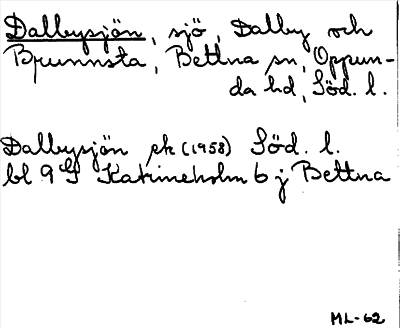 Dalbysjön, sjö, Dalby och
Brunnsta, Bettna sn, Oppun-
da hd, Söd. l.
Dalbysjön ek (1958) Söd. l.
bl 9 G Katrineholm 6 j Bettna
ML-62